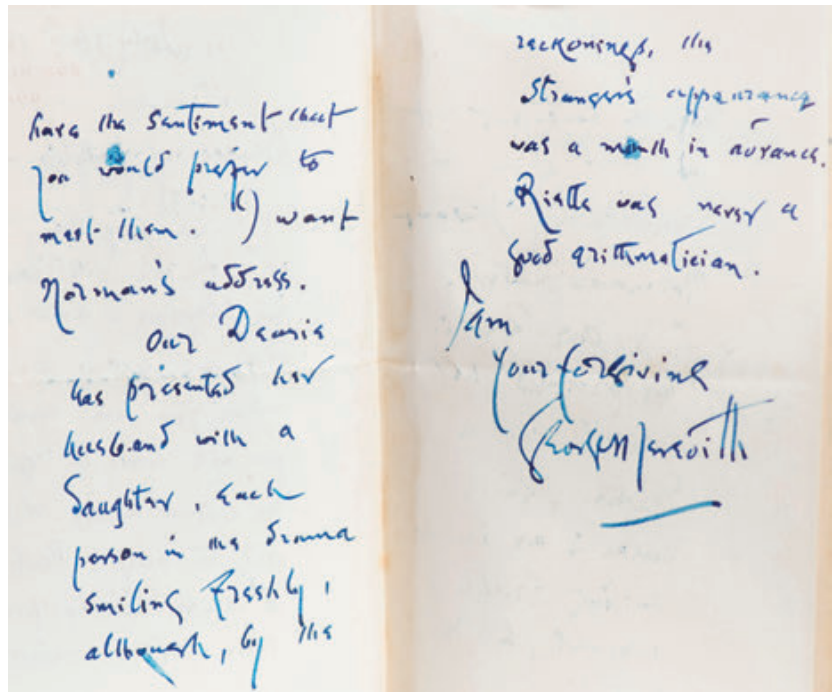 have the sentiment that
you would prefer to
meet them. I want
Norman's address.
Our Dearie
has presented her
husband with a
daughter, each
person in the drama
smiling freshly,
although, by the
reckonings, the
Stranger's appearance
was a month in advance.
Rietta was never a
good arithmatician.
I am
Your forgiving
George Meredith